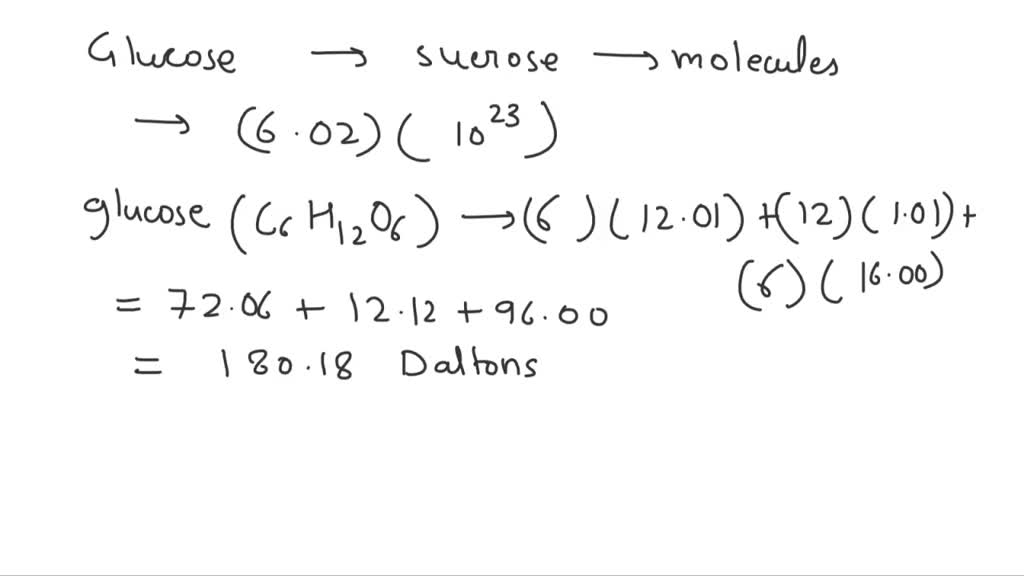 Glucose → sucrose → molecules
→ (6.02) (10²³)
glucose (C₆H₁₂O₆) → (6)(12.01) + (12)(1.01) +
(6)(16.00)
= 72.06 + 12.12 + 96.00
= 180.18 Daltons